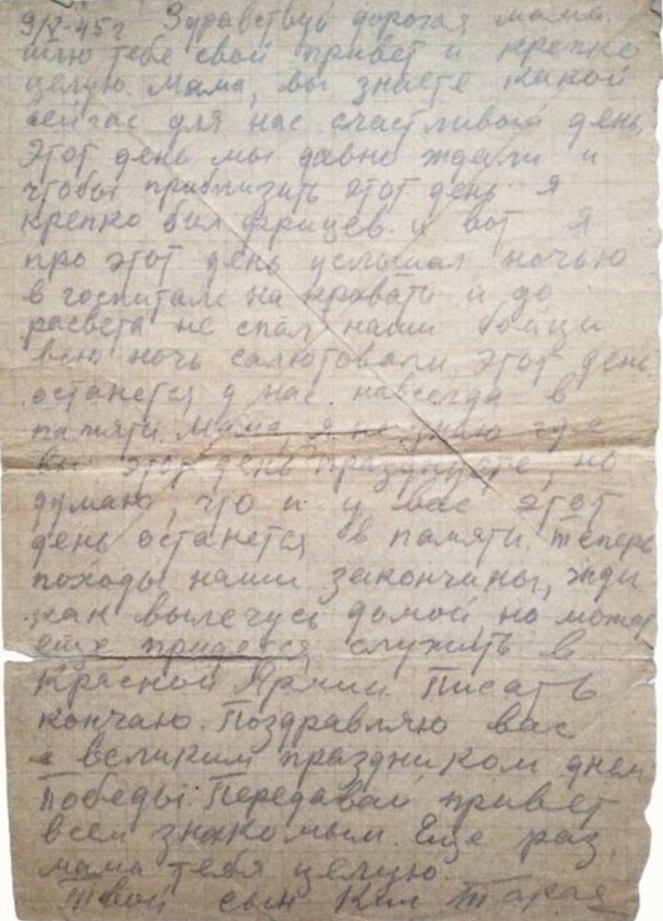 9/V-45г Здравствуй дорогая мама.
шлю тебе свой привет и крепко
целую. Мама, вы знаете какой
сейчас для нас счастливый день
Этот день мы давно ждали и
чтобы приблизить этот день я
крепко бил фрицев. и вот я
про этот день услышал ночью
в госпитале на кровати и до
расвета не спал наши бойцы
всю ночь салютовали, этот день
останется у нас навсегда в
памяти. Мама, я не знаю где
вы этот день празднуете, но
думаю, что и у вас этот
день останется в памяти. теперь
походы наши закончины, жди
как вылечусь домой но может
еще придется служить в
красной Армии. Писать
кончаю. Поздравляю вас
с великим праздником днем
Победы. Передавай привет
всем знакомым. Еще раз,
мама тебя целую.
Твой сын Ким Тарая